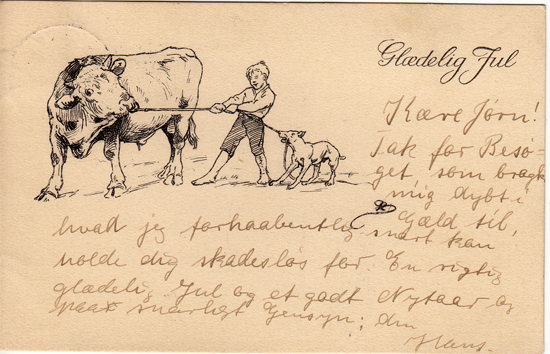 Glædelig Jul
Kære Jørn!
Tak for Besø-
get, som bragte
mig dybt i
Gæld til,
hvad jeg forhaabentlig snart kan
holde dig skadesløs for. En rigtig
glædelig Jul og et godt Nytaar og
paa snarligt Gensyn; din
Hans.